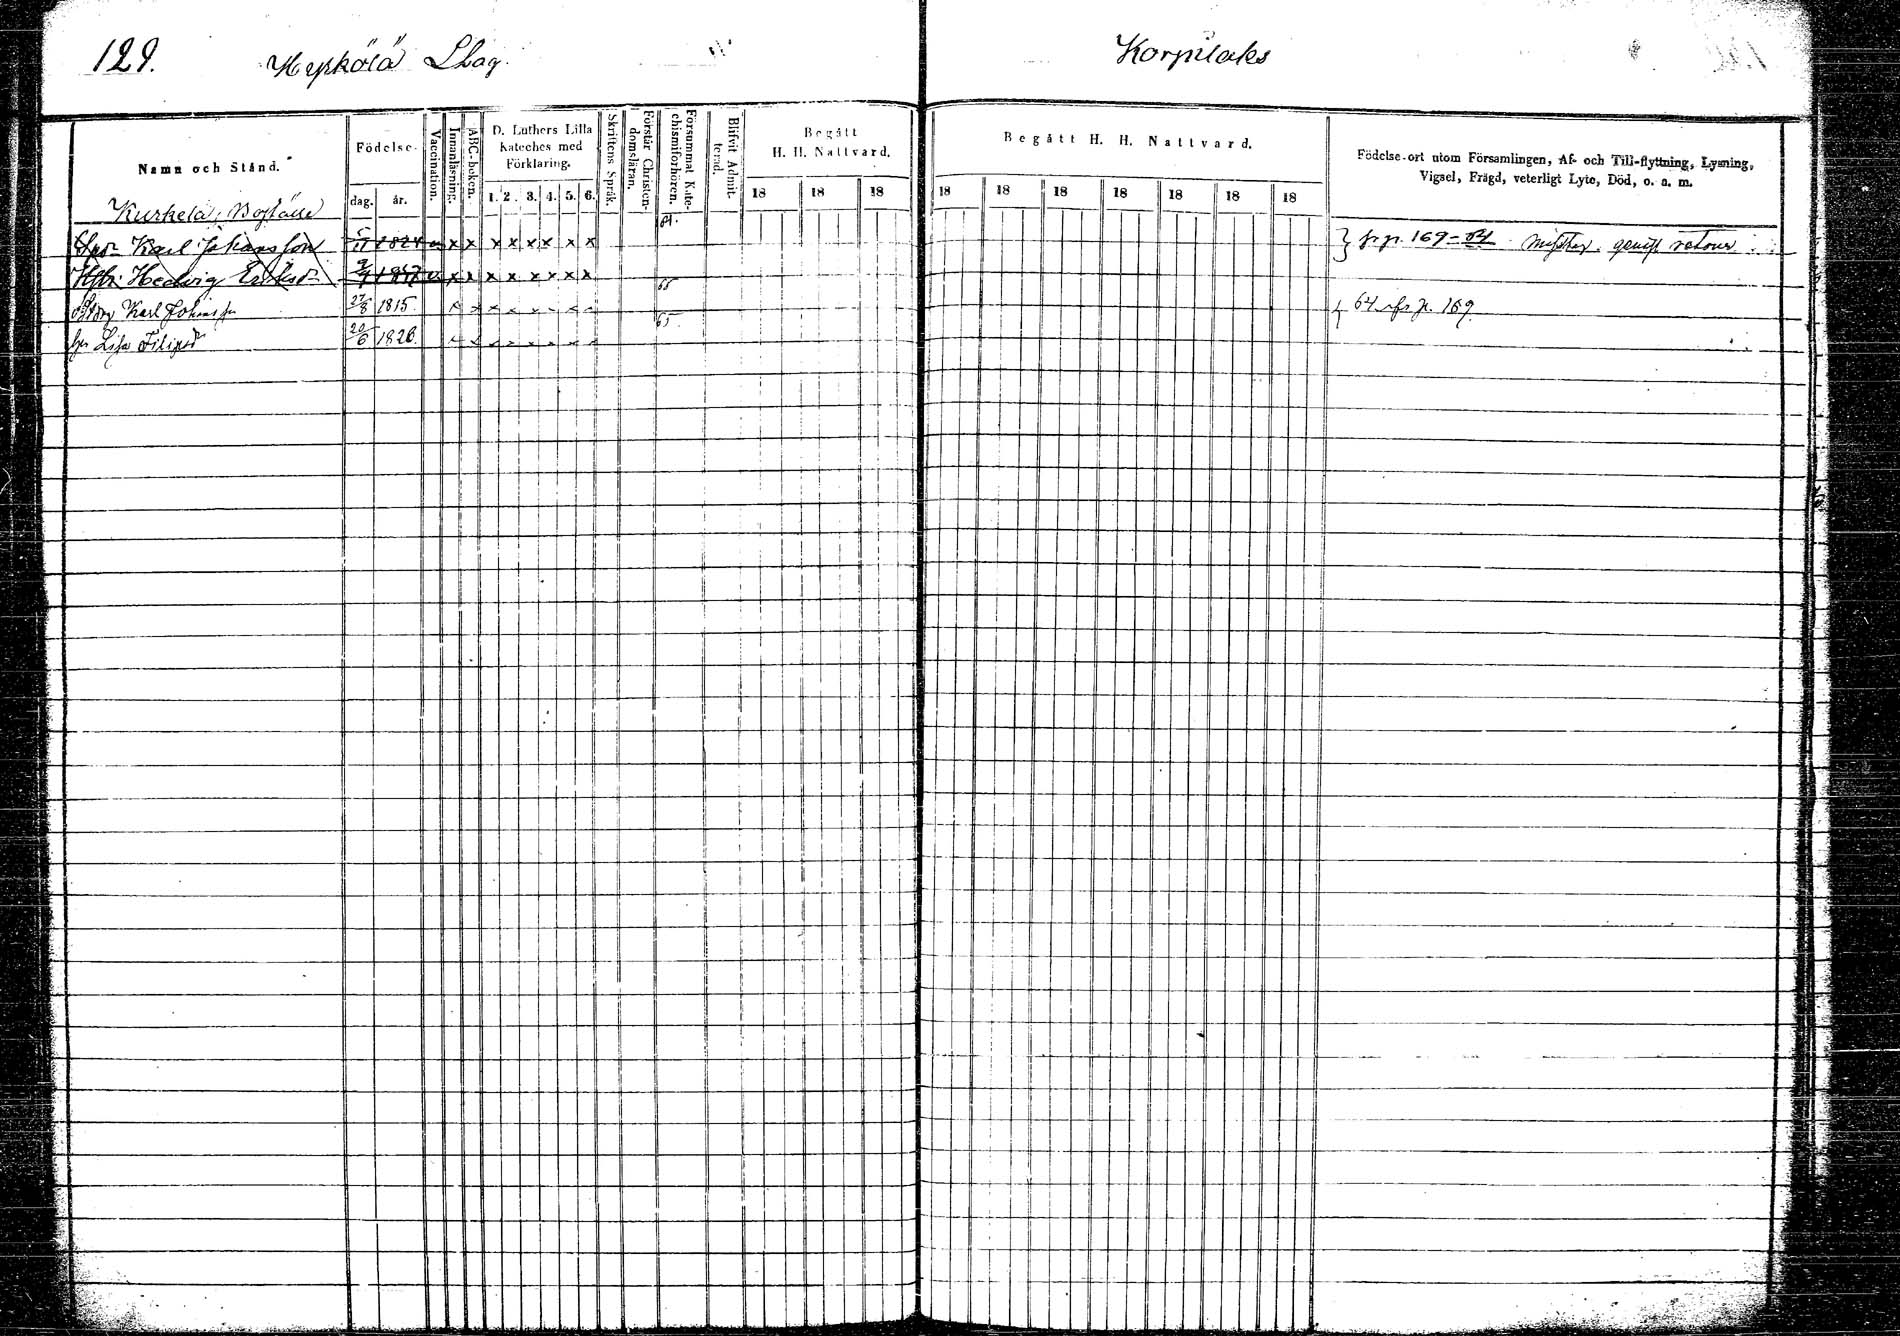 129. Hyrkölä Lhag. Korpilaks
Namn och Stånd.
Födelse-
dag. år.
Vaccination.
Innanläsning.
ABC-boken.
D. Luthers Lilla
Kateches med
Förklaring.
1. 2. 3. 4. 5. 6.
Skriftens Språk.
Förstår Christen-
domsläran.
Försummat Kate-
chismiförhören.
Blifvit Admit-
terad.
Begått
H. H. Nattvard.
18 18 18
Begått H. H. Nattvard.
18 18 18 18 18 18 18
Födelse-ort utom Församlingen, Af- och Till-flyttning, Lysning,
Vigsel, Frägd, veterligt Lyte, Död, o. a. m.
Kurkela, Boställe
Karl Johansson 5/11 1824 x x x x x x x x } fr. p. 169 - 64
Hedwig x x x x x x x x 65
Karl Johansson 27/8 1815. x x x x x x x x { 64 fr p. 169
Lisa Filipsd 20/6 1826. x x x x x x x x 65